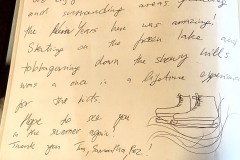 and surrounding areas
the New Years here was amazing!
Skating on the frozen lake and
tobbogganing down the snowy hills
was a once in a lifetime experience
for the kids.
Hope to see you
in the summer again!
Thank you Tim, Samantha,